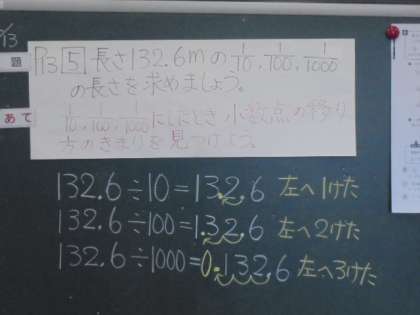 /13
題
P13 5 長さ132.6mの1/10, 1/100, 1/1000
の長さを求めましょう。
あて
1/10, 1/100, 1/1000にしたとき小数点の移り
方のきまりを見つけよう。
132.6÷10=13.2.6 左へ1けた
132.6÷100=1.32.6 左へ2けた
132.6÷1000=0.132.6 左へ3けた